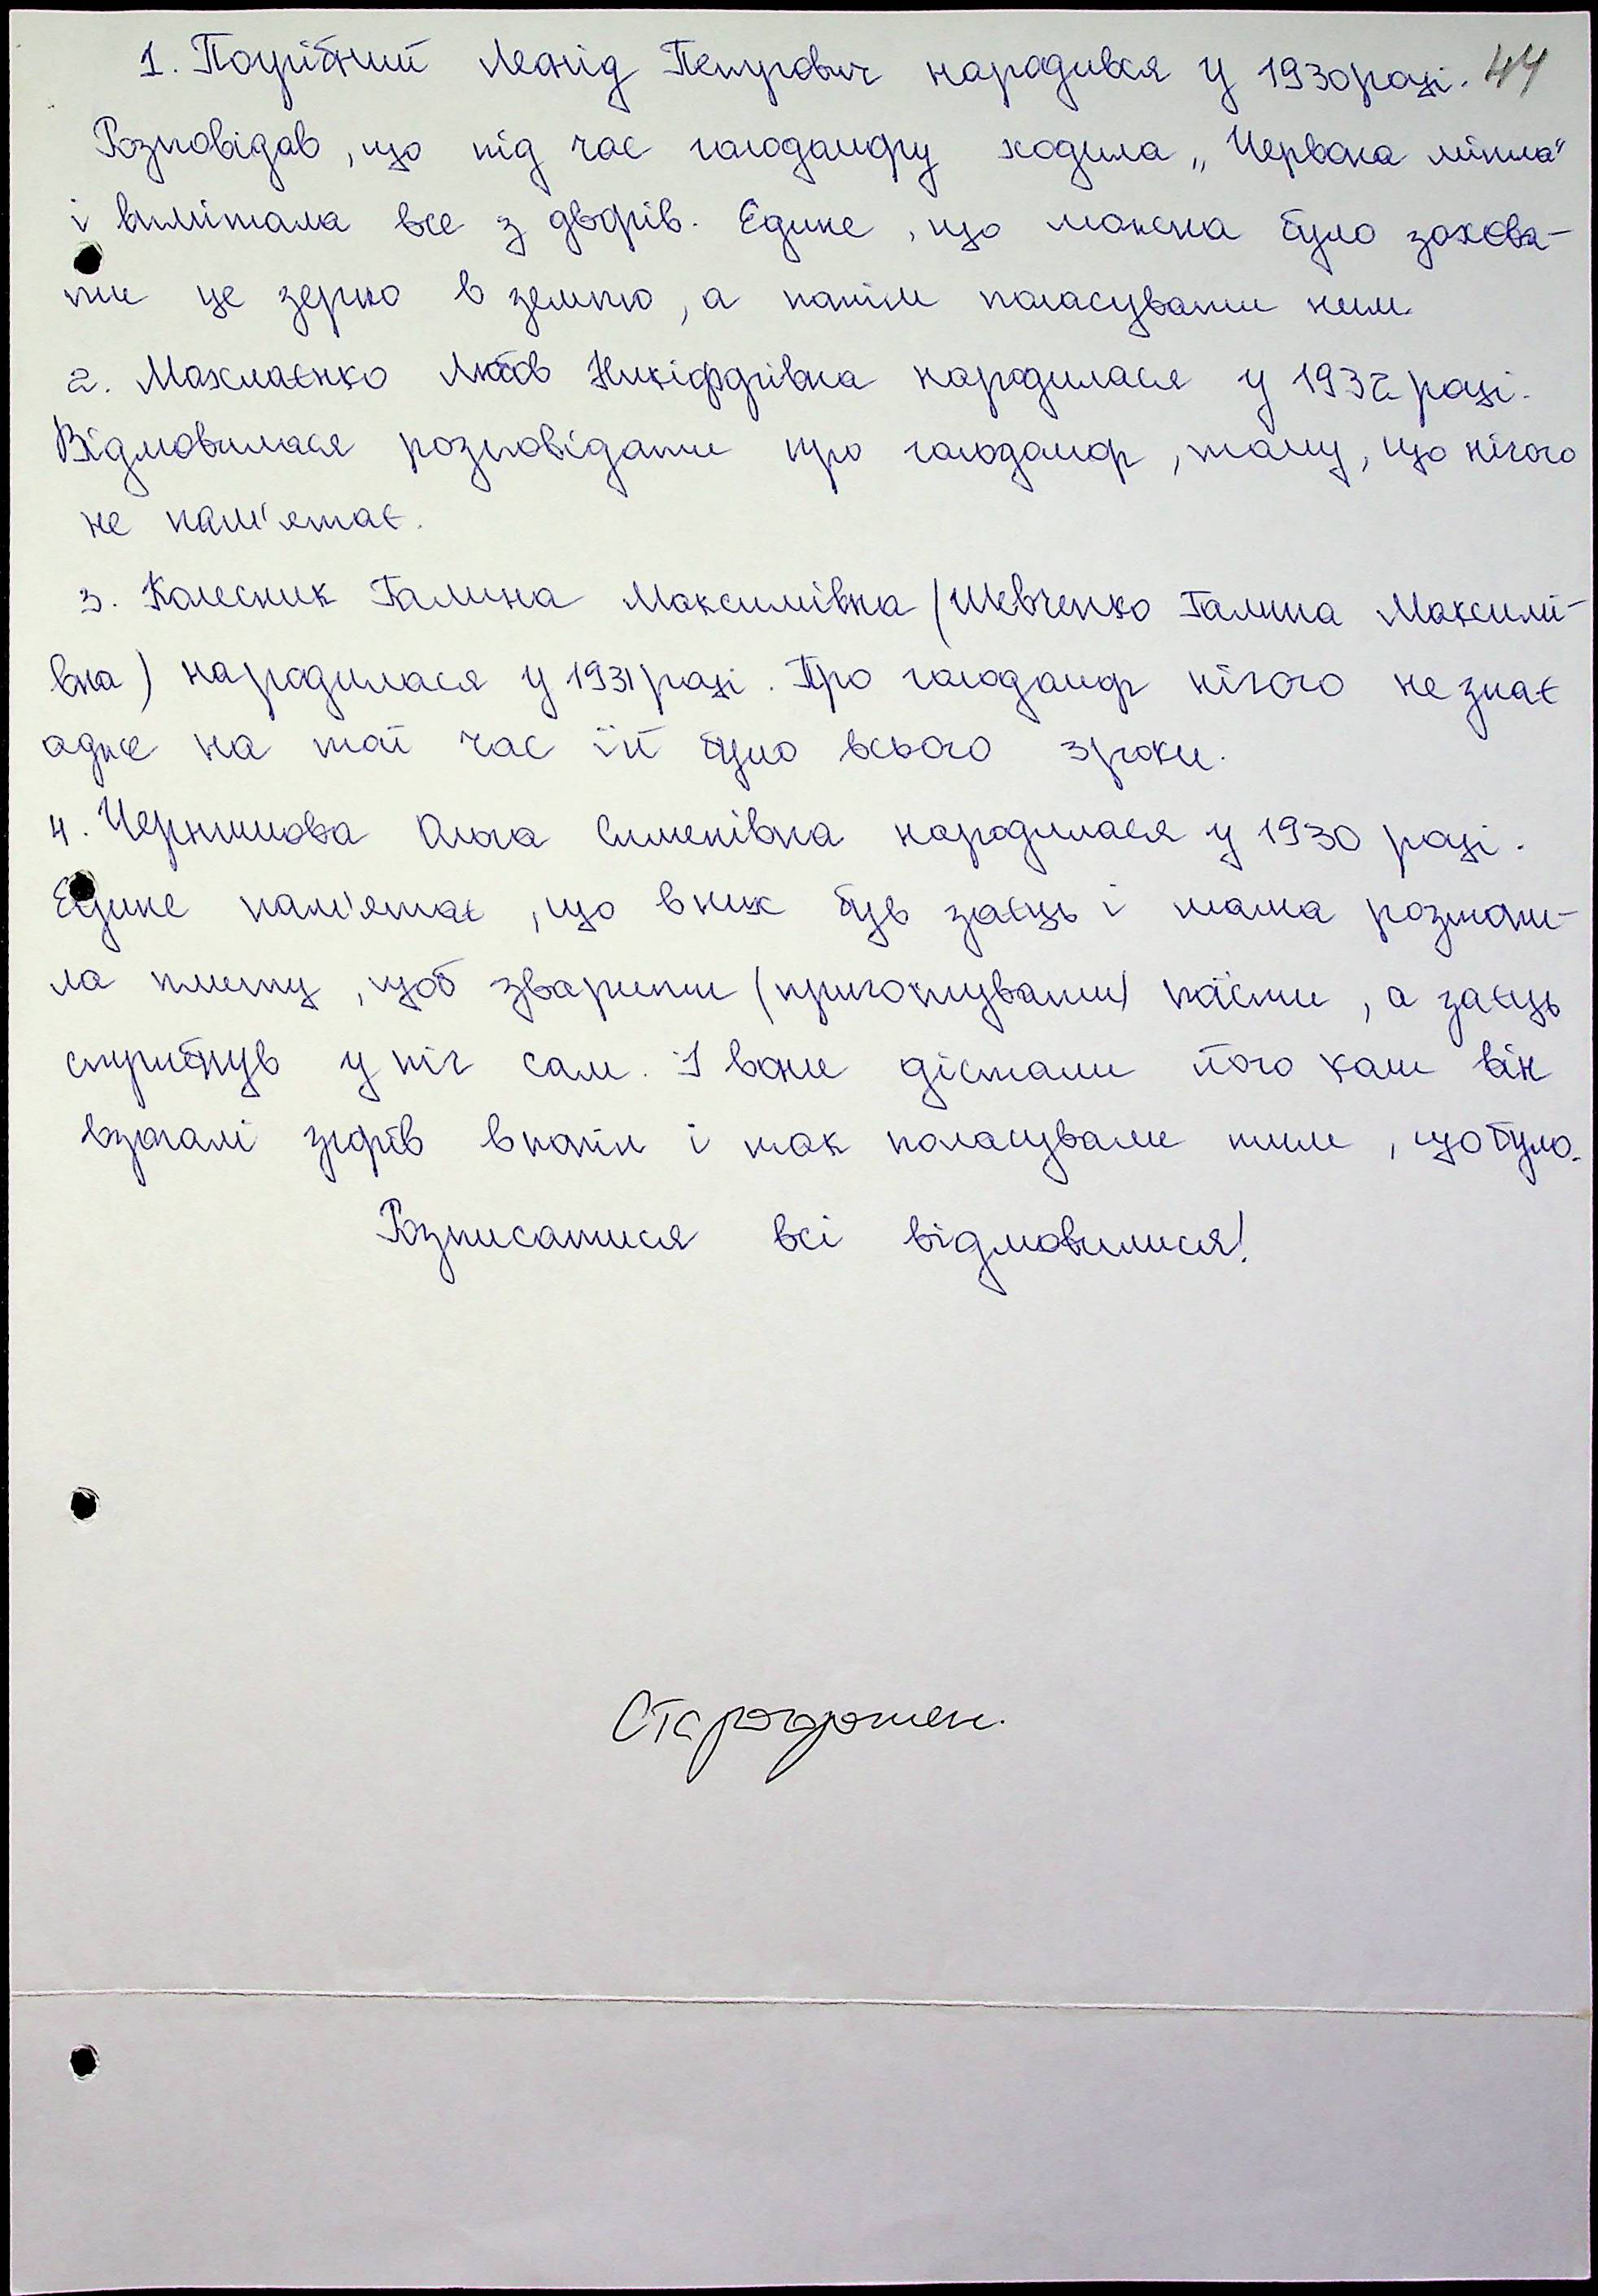 1. Погрібний Леонід Петрович народився у 1930 році. 44
Розповідав, що під час голодомору ходила „Червона мітла"
і вимітала все з дворів. Єдине, що можна було захова-
ти це зерно в землю, а потім поласувати ним.
2. Махлаєнко Любов Никіфорівна народилася у 1932 році.
Відмовилася розповідати про голодомор, тому, що нічого
не пам'ятає.
3. Колесник Галина Максимівна (Шевченко Галина Максимі-
вна) народилася у 1931 році. Про голодомор нічого не знає
адже на той час їй було всього 3 роки.
4. Чернишова Ольга Сименівна народилася у 1930 році.
Єдине пам'ятає, що в них був заєць і мама розтопи-
ла плиту, щоб зварити (приготувати) поїсти, а заєць
стрибнув у піч сам. І вони дістали його коли він
взагалі згорів в попіл і так поласували тим, що було.
Розписатися всі відмовилися!